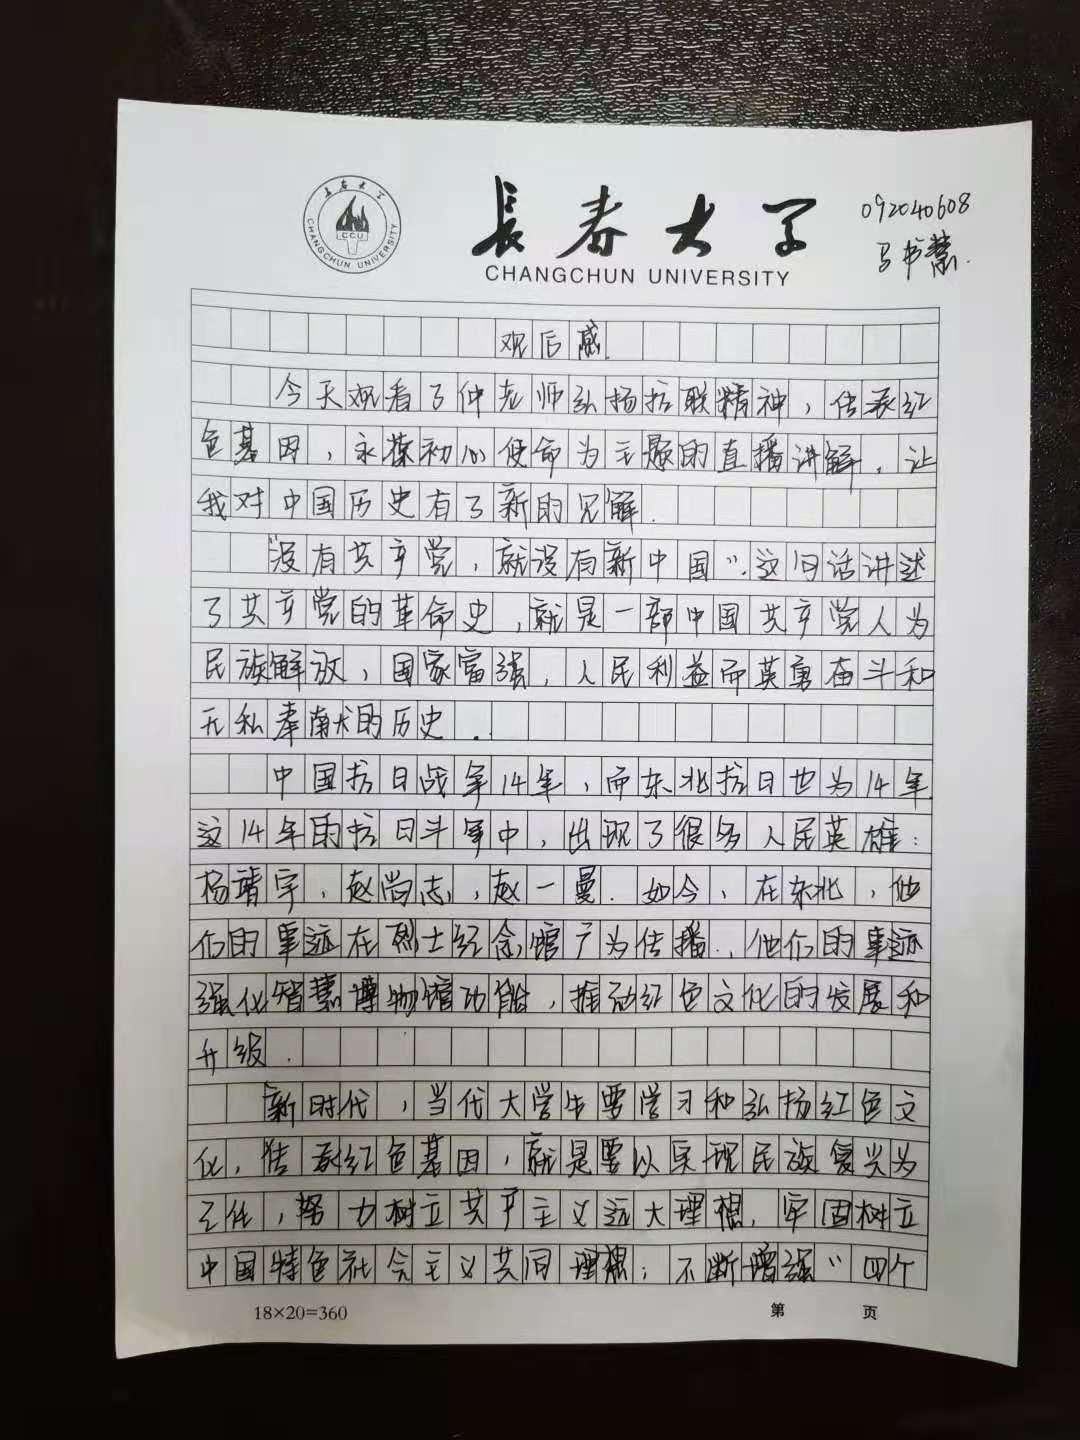 長春大学
CHANGCHUN UNIVERSITY
CHANGCHUN UNIVERSITY
CCU
092040608
马书慧.
观后感.
今天观看了仲老师弘扬抗联精神，传承红
色基因，永葆初心使命为主题的直播讲解，让
我对中国历史有了新的见解.
"没有共产党，就没有新中国".这句话讲述
了共产党的革命史，就是一部中国共产党人为
民族解放，国家富强，人民利益而英勇奋斗和
无私奉献的历史.
中国抗日战争14年，而东北抗日也为14年.
这14年的抗日斗争中，出现了很多人民英雄：
杨靖宇，赵尚志，赵一曼.如今，在东北，他
们的事迹在烈士纪念馆广为传播.，他们的事迹
强化智慧博物馆功能，推动红色文化的发展和
升级.
新时代，当代大学生要学习和弘扬红色文
化，传承红色基因，就是要以实现民族复兴为
己任，努力树立共产主义远大理想，牢固树立
中国特色社会主义共同理想；不断增强"四个
18×20=360
第 页